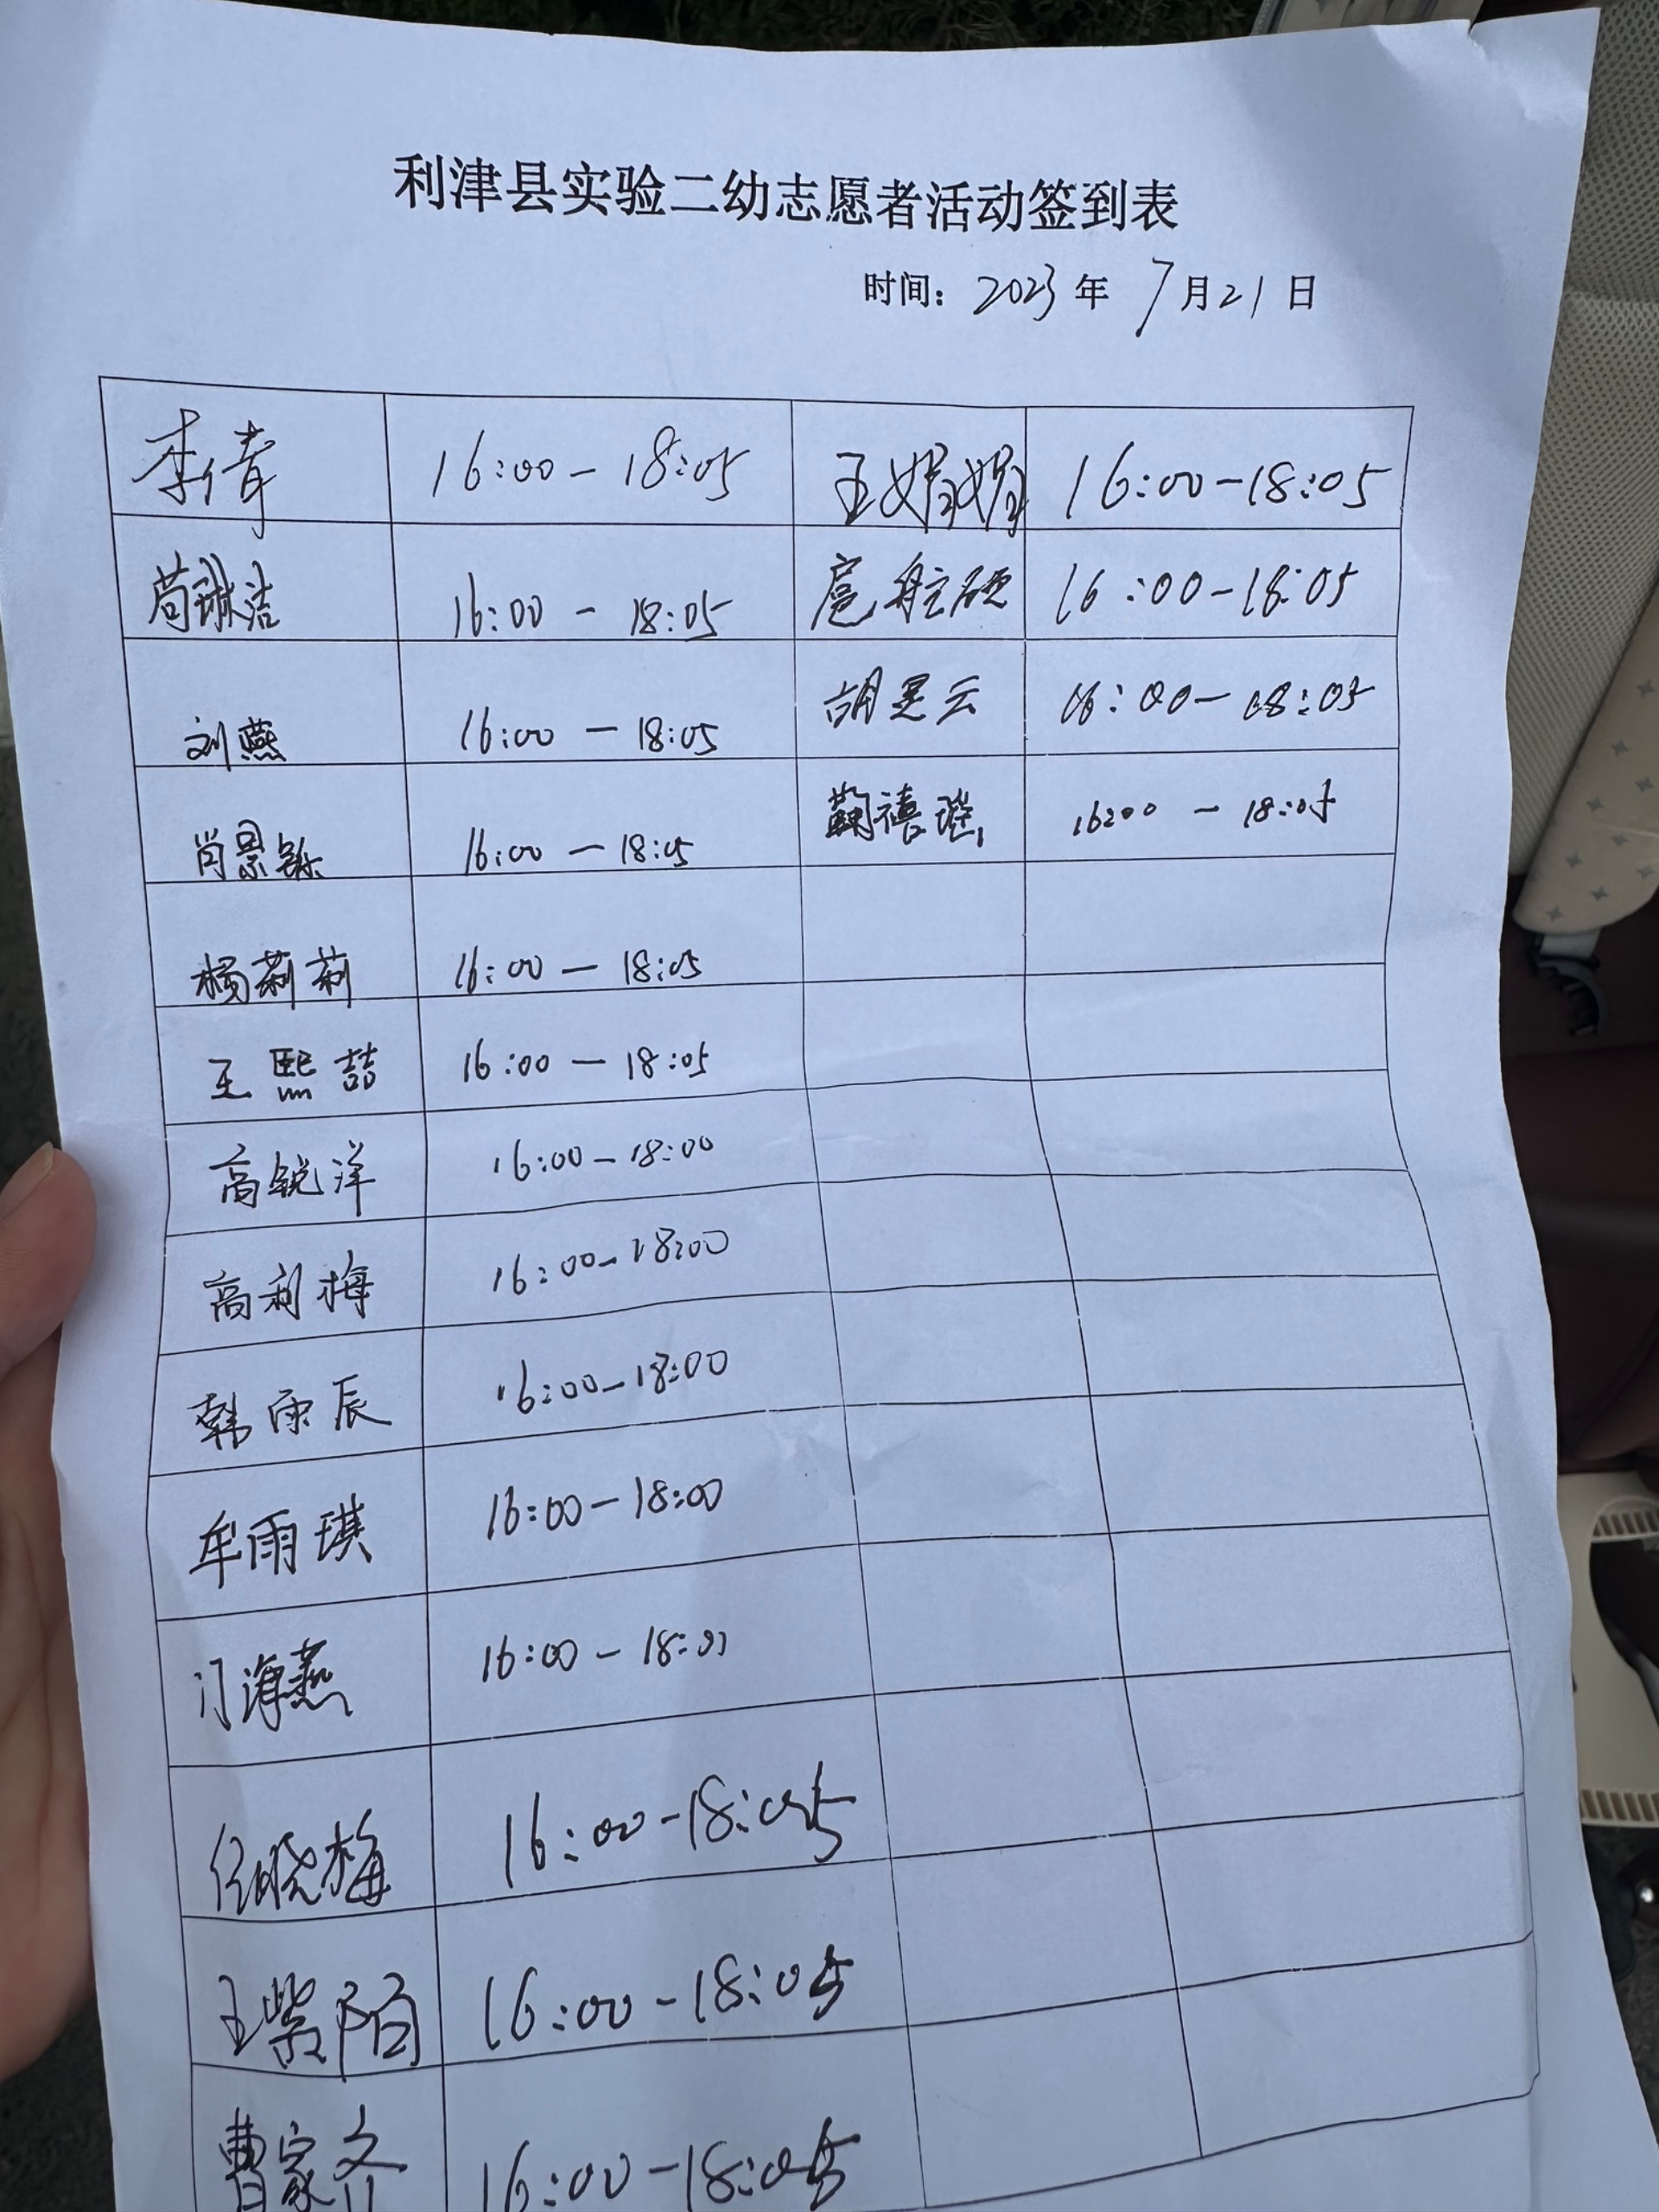 利津县实验二幼志愿者活动签到表
时间：2023年 7月21日
李倩 16:00-18:05 王娟娟 16:00-18:05
苟琳洁 16:00-18:05 扈航硕 16:00-18:05
刘燕 16:00-18:05 胡思云 16:00-18:05
肖景铄 16:00-18:05 鞠禧瑶 16:00-18:05
杨莉莉 16:00-18:05
王熙喆 16:00-18:05
高锐洋 16:00-18:00
高利梅 16:00-18:00
韩雨辰 16:00-18:00
牟雨琪 16:00-18:00
门海燕 16:00-18:00
任晓梅 16:00-18:05
王紫陌 16:00-18:05
曹家齐 16:00-18:05